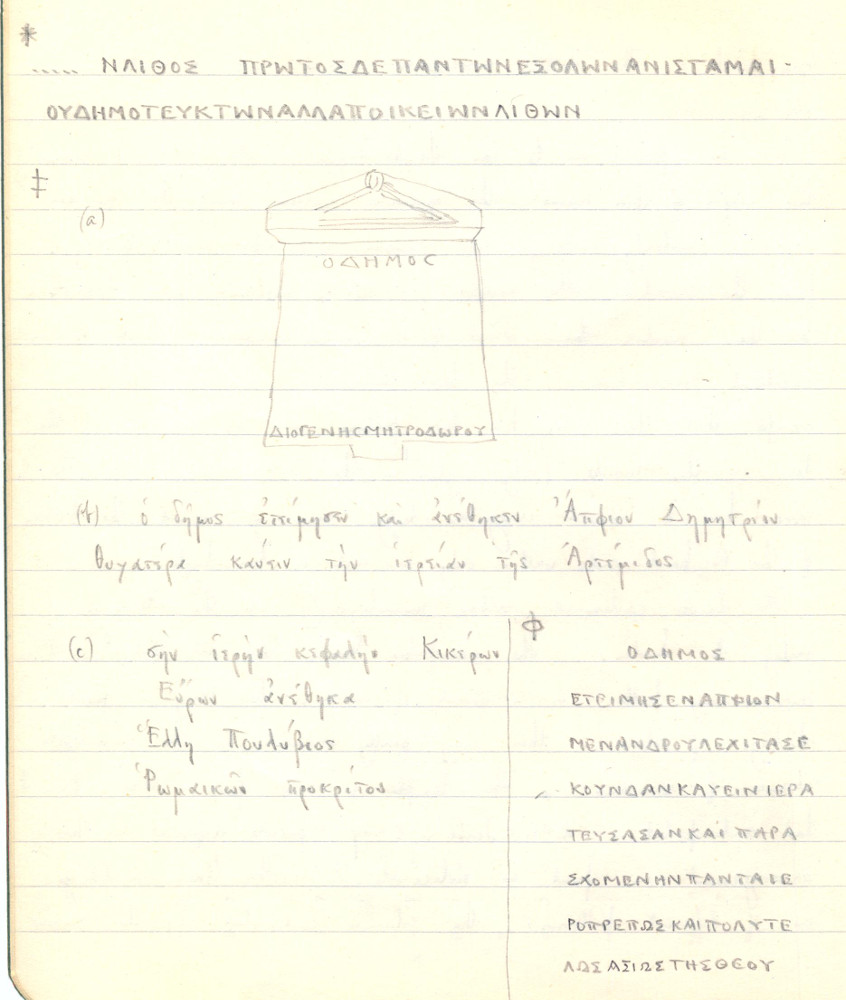 ..... ΝΛΙΘΟΣ ΠΡΩΤΟΣΔΕΠΑΝΤΩΝΕΣΟΛΩΝΑΝΙΣΤΑΜΑΙ·
ΟΥΔΗΜΟΤΕΥΚΤΩΝΑΛΛΑΠΟΙΚΕΙΩΝΛΙΘΩΝ
(a)
ΟΔΗΜΟC
ΔΙΟΓΕΝΗCΜΗΤΡΟΔΩΡΟΥ
(b) ὁ δῆμος ἐτείμησεν καὶ ἀνέθηκεν Ἄπφιον Δημητρίου
θυγατέρα καύειν τὴν ἱερείαν τῆς Ἀρτέμιδος
(c) σὴν ἱερὴν κεφαλὴν Κικέρων
Εὕρων ἀνέθηκα
Ἕλλη Πουλύβιος
Ῥωμαικῶν προκρίτου
ΟΔΗΜΟΣ
ΕΤΕΙΜΗΣΕΝΑΠΦΙΟΝ
ΜΕΝΑΝΔΡΟΥΛΕΧΙΤΑΣΕ
ΚΟΥΝΔΑΝΚΑΥΕΙΝΙΕΡΑ
ΤΕΥΣΑΣΑΝΚΑΙ ΠΑΡΑ
ΣΧΟΜΕΝΗΝΠΑΝΤΑΙΕ
ΡΟΠΡΕΠΩΣΚΑΙΠΟΛΥΤΕ
ΛΩΣΑΞΙΩΣΤΗΣΘΕΟΥ